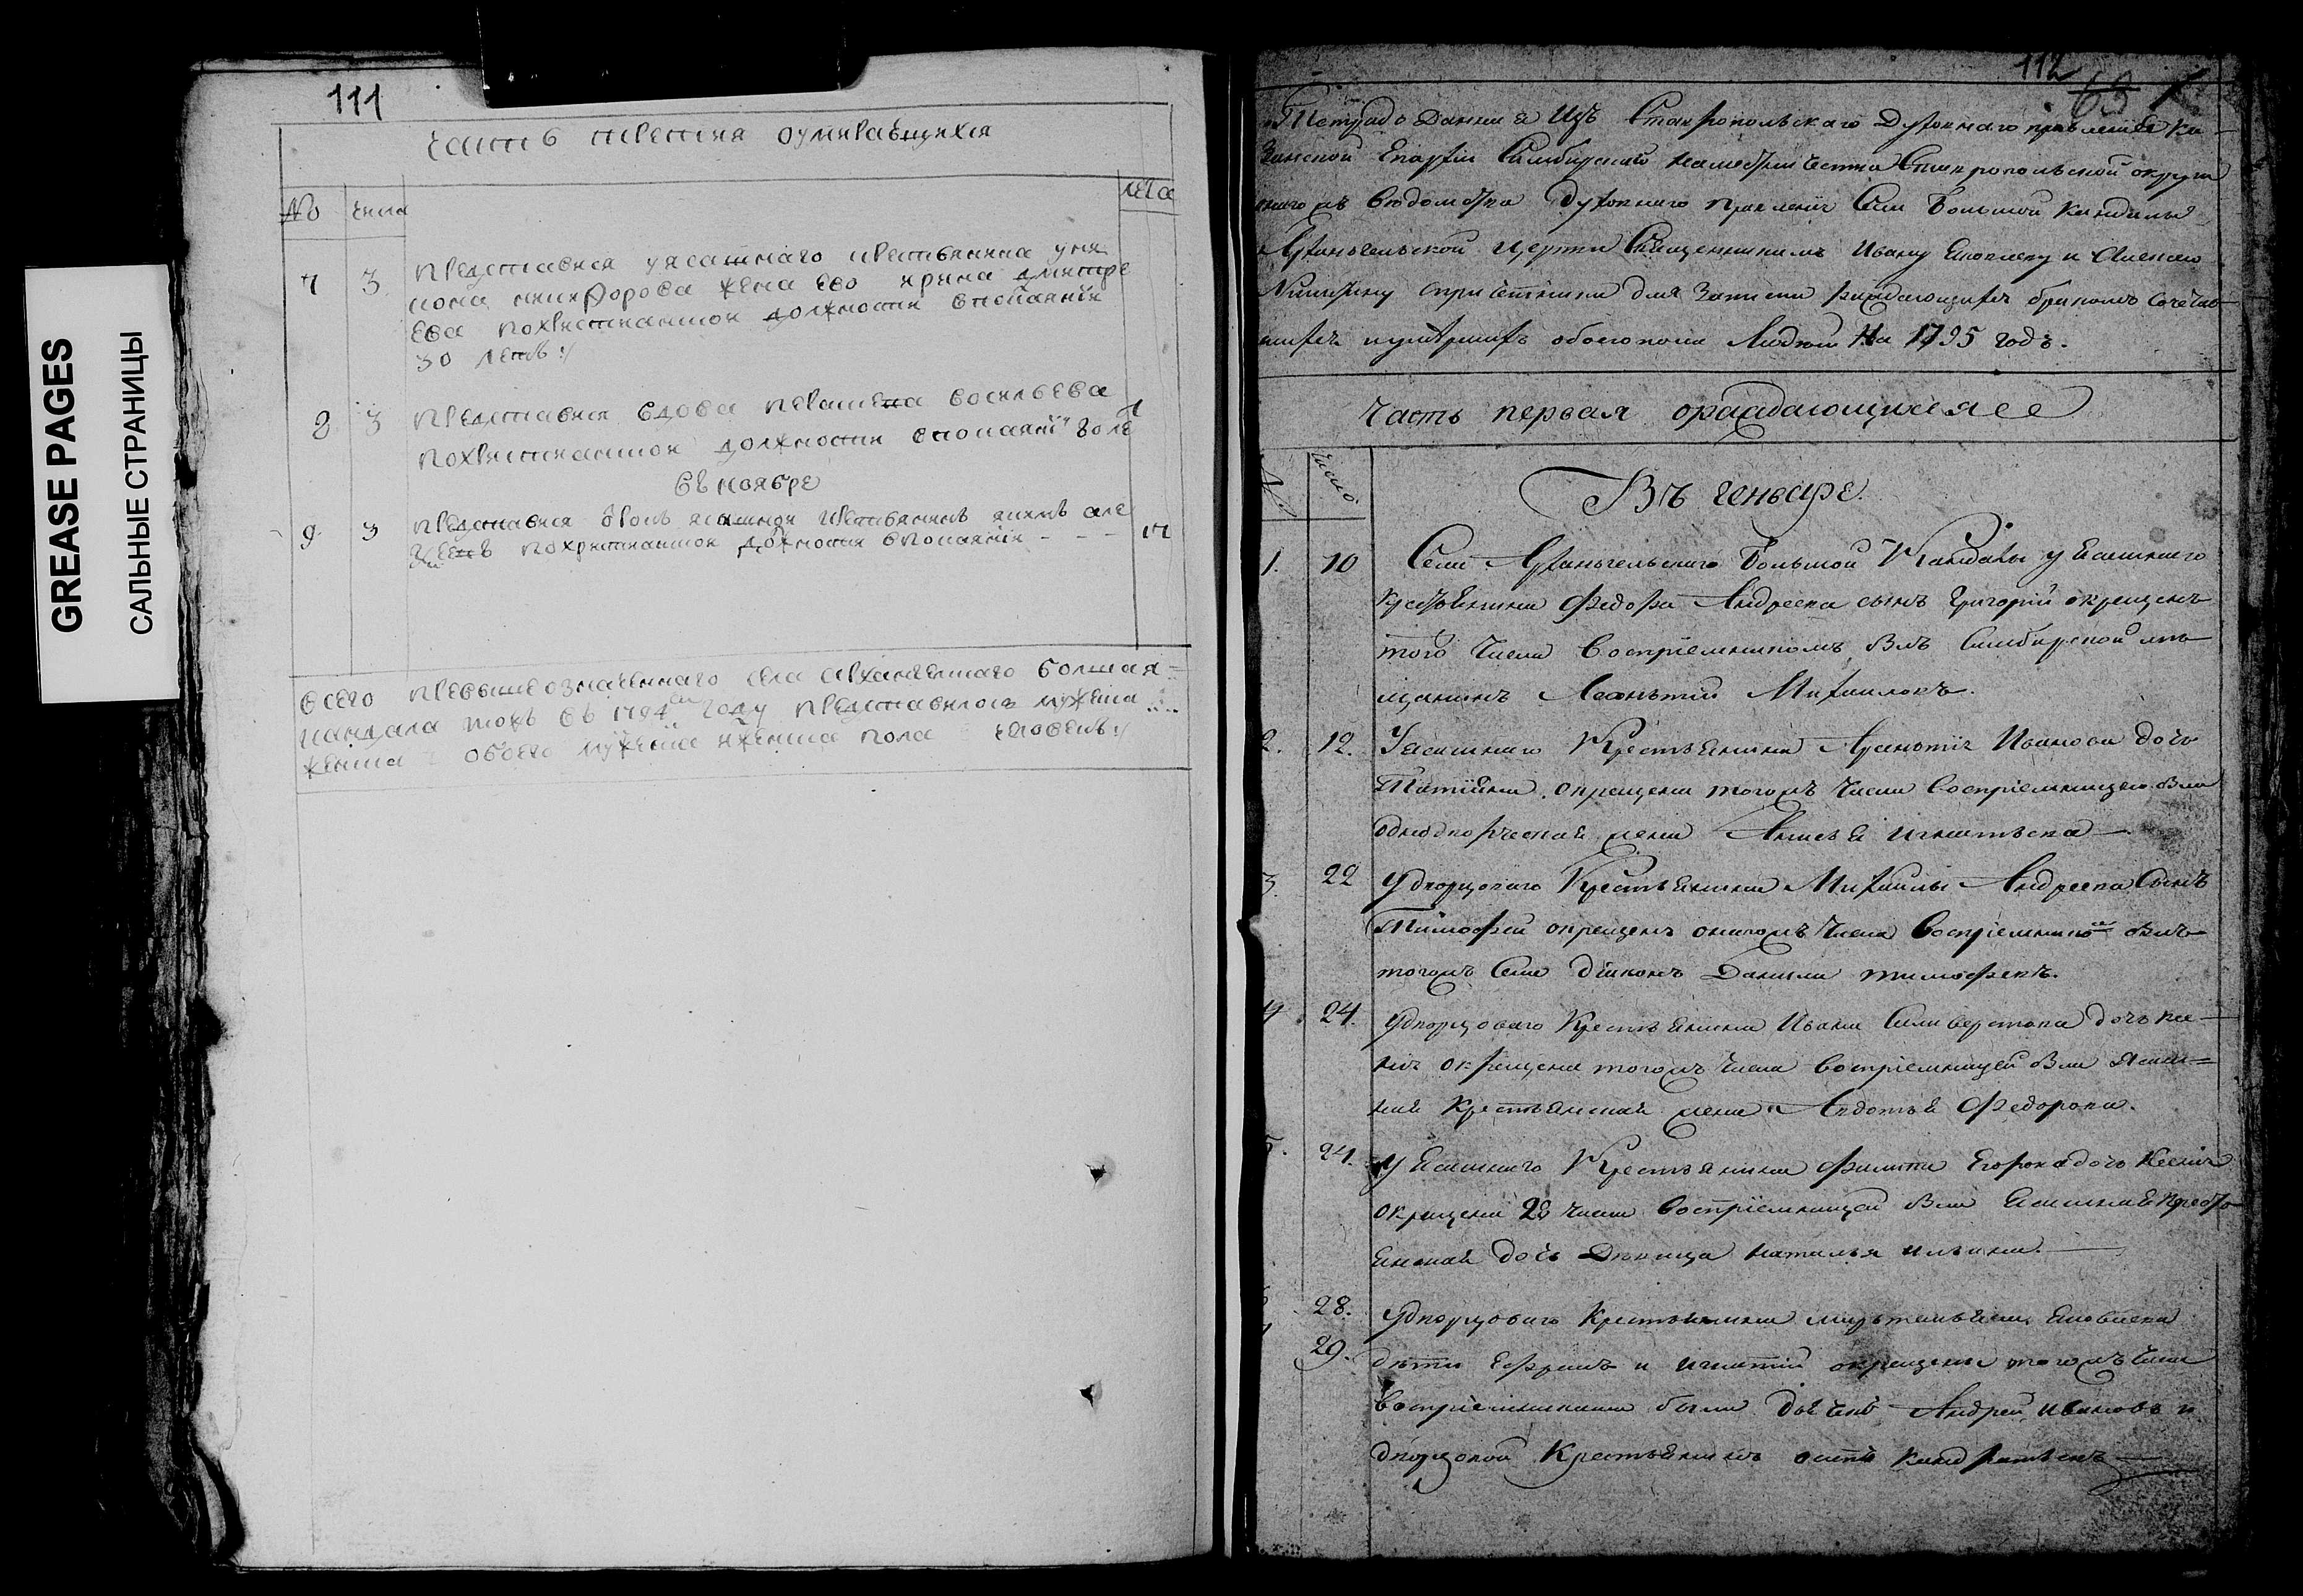 GREASE PAGES
САЛЬНЫЕ СТРАНИЦЫ
111
часть третия оумираѣщихся
№ числа лета
7 3 преставися уясашнаго крестьянина
никифорова жена ево ирина дмитре
ева похристианской должности впокаянїи
30 летъ
8 3 преставися вдова васильева
похристианской должности впокаянїи
въ ноябре
9 3 преставися ясашной крестьянинъ якимъ але
ѣевъ похристианской должности впокаянїи - - -
всего превышеозначеннаго села архангелскаго болшая
кандала токъ въ 1794 году преставилось мужеска
женска обоего мужеска иженска пола человекъ
112
63
Тетрадь Данная Изъ Ставропольскаго Духовнаго правления Ка
занской Епархїи Симбирскаго намесничества Ставропольской округи
вѣдомства Духовнаго правленїя Села Большой Кандалы
Архангельской церкви Священникамъ Ивану Яковлеву и Алексею
Никитину спричетники для Записи раждающихся бракомъ Сочетав
шихся иумершихъ обоегопола Людей На 1795 годъ.
Часть первая ораждающихся
№. число
Въ генваре.
1. 10 Села Архангельскаго Большой Кандалы у Ясашнаго
крестьянина Федора Андреева сынъ Григорий окрещенъ
того числа Восприемникомъ былъ Симбирской мѣ
щанинъ Леонтий Михаиловъ.
2. 12. Уясашнаго Крестьянина Ивanова дочь
Татияна окрещена тогожъ Числа Восприемницею была
однодворческая жена Анисья игнатьева
3 22 Удворцоваго Крестьянина Михаилы Андреева Сынъ
Тимофей окрещенъ оногожъ Числа Восприемникомъ былъ
тогожъ Села дияконъ Данила тимофеевъ.
4 24. Удворцоваго Крестьянина Ивана Силиверстова дочь Ксе
ния окрещена тогожъ числа Восприемницей была Ясаш
ная Крестьянская жена Авдотья Федорова.
5. 24. У Ясашнаго Крестьянина Филипа Егорова дочь Ксения
окрещена 28 числа Восприемницей была Ясашная Кресть
янская дочь Девица Наталья ильина.
28. Удворцоваго Крестьянина Яковлева
29. дѣти Ефремъ и игнатий окрещены тогожъ числа
Восприемниками были дьячекъ Андрей Ивановъ и
дворцовой Крестьянинъ осипъ Кандратьевъ